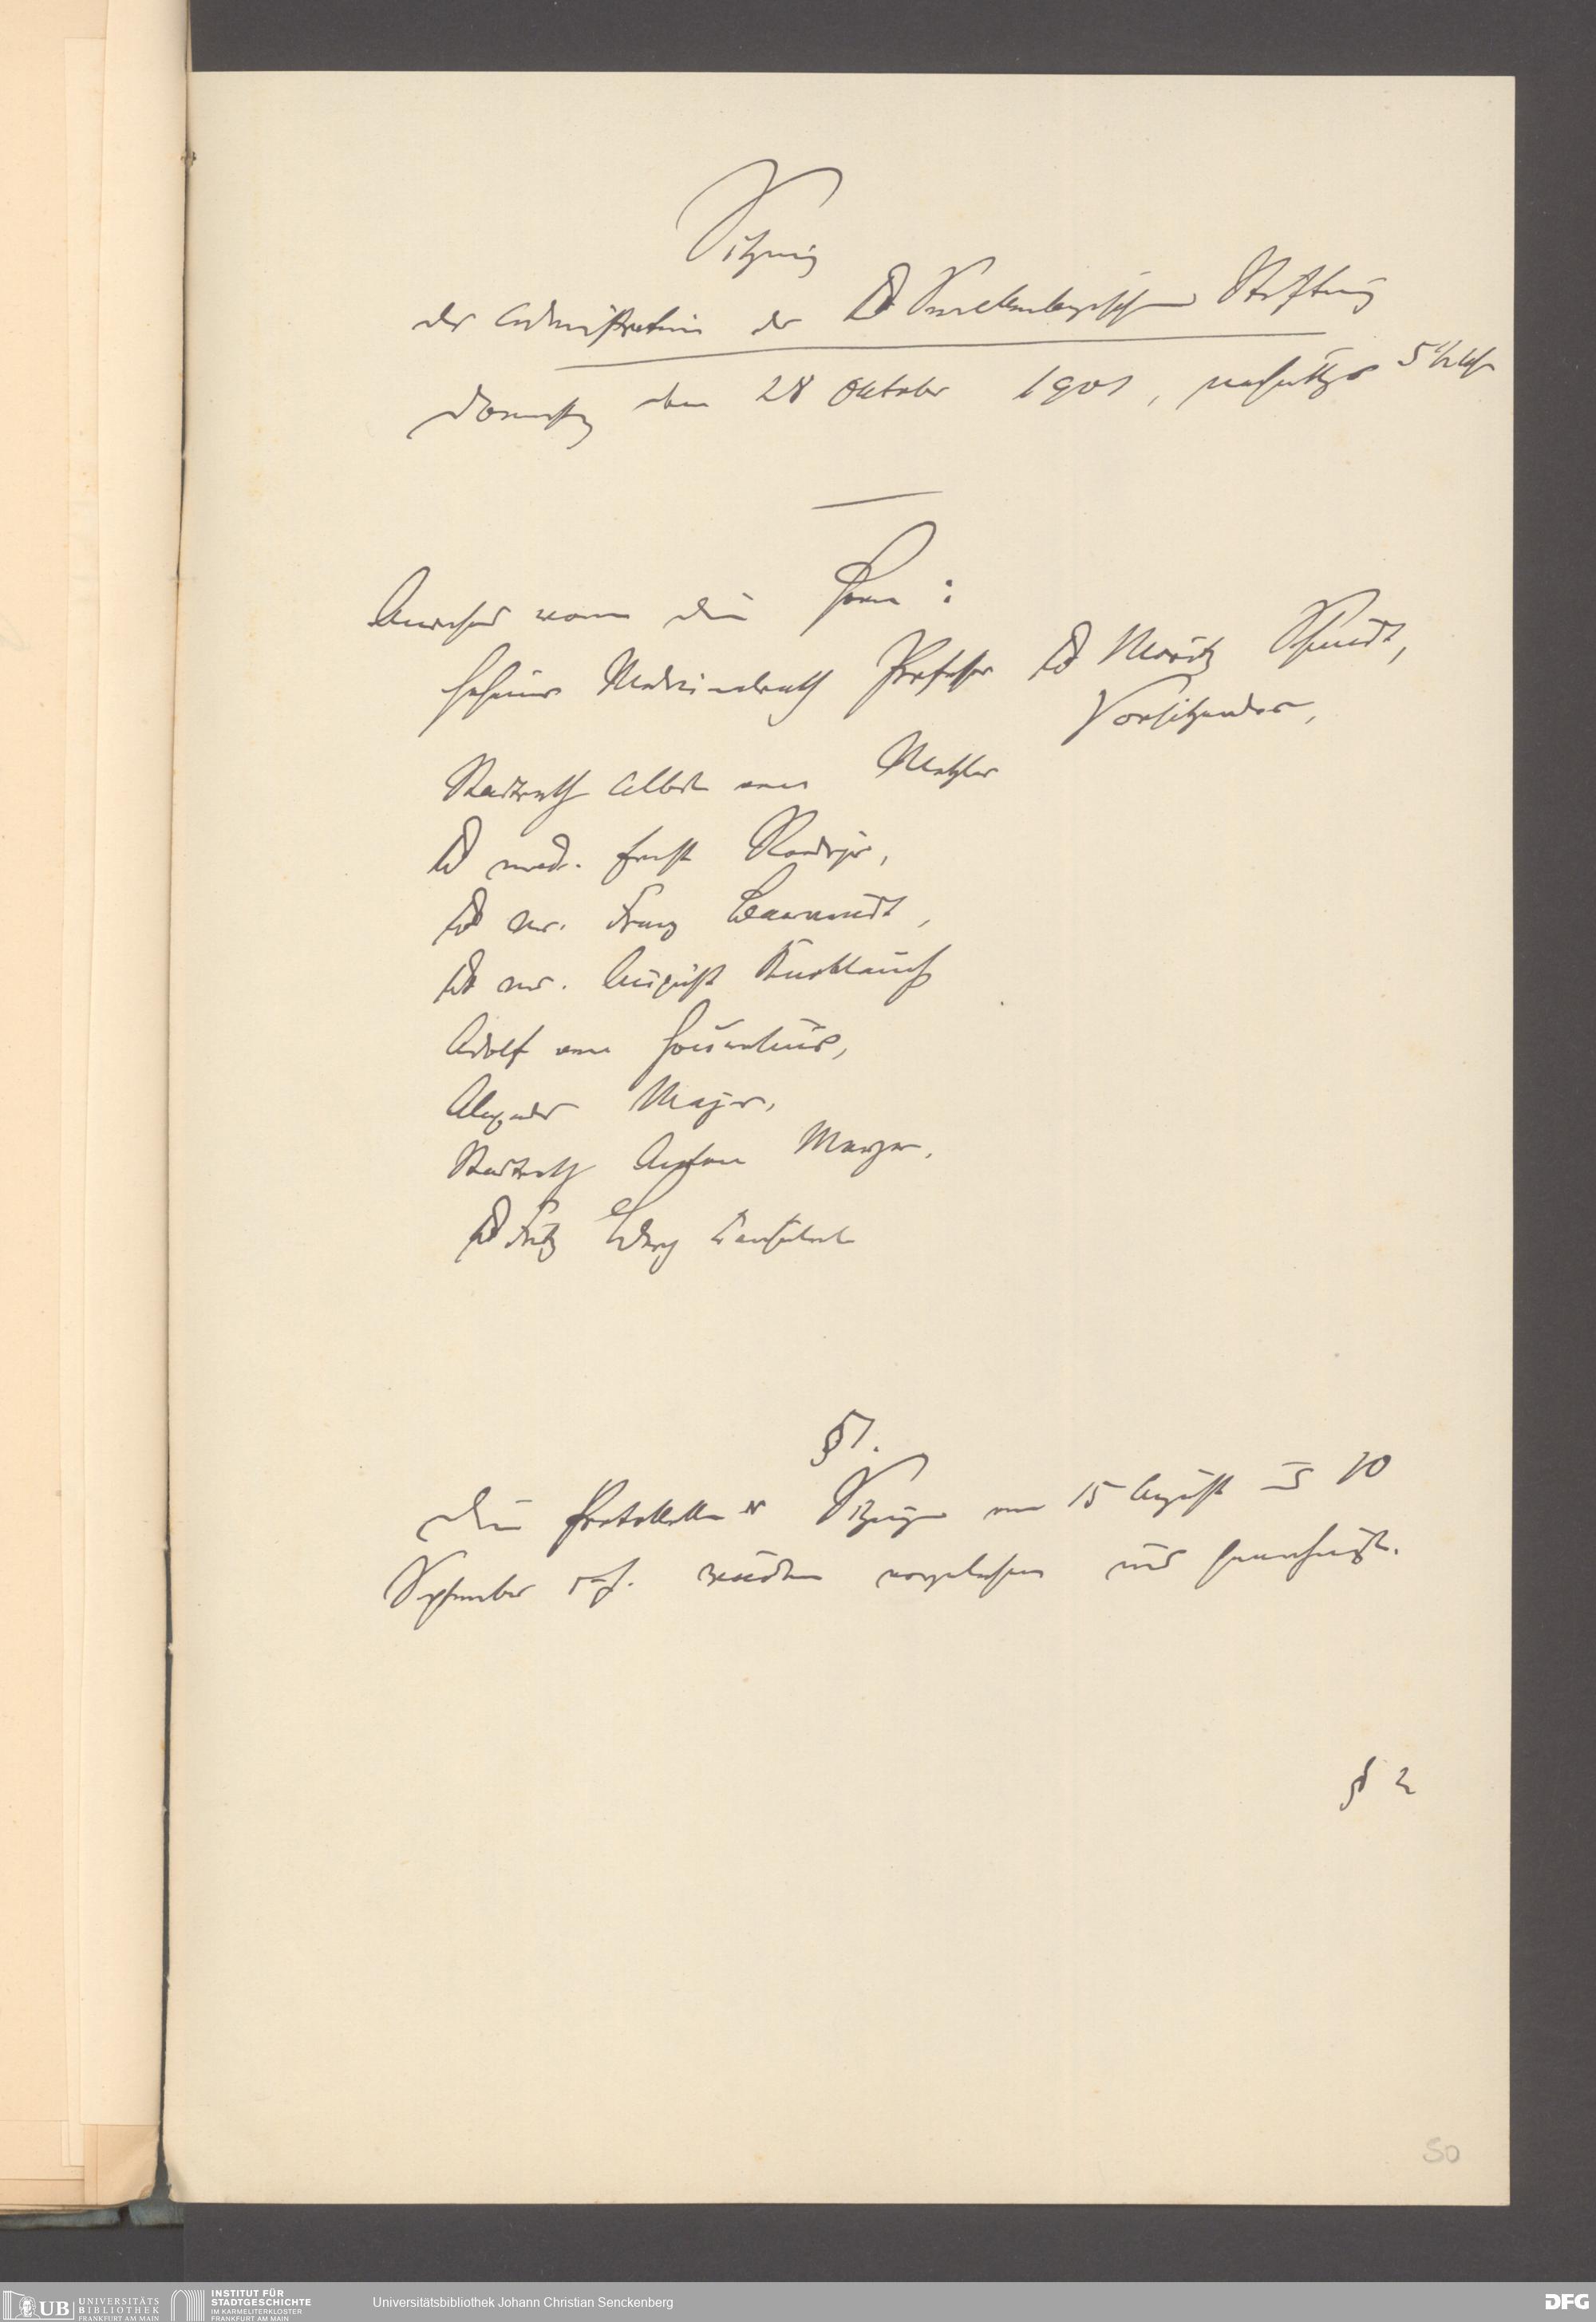 Sitzung
der Administration der Dr Senckenbergischen Stiftung
den 28 Oktober 1901, nachmittags 5 1/2 Uhr
Anwesend waren die Herren:
Geheimer Medicinalrath Professor Dr Moritz Schmidt,
Vorsitzender,
Stadtrath Albert von Metzler
Dr med. Ernst Roediger,
Dr med. Franz
Dr med. August Knoblauch
Adolf von
Alexander Majer,
Stadtrath Anton Meyer,
Dr Fritz Berg Consulent
§ 1.
Die Protokolle der Sitzungen vom 15 August und 10
September wurden vorgelesen und genehmigt.
§ 2
50
UB UNIVERSITÄTS
BIBLIOTHEK
FRANKFURT AM MAIN
INSTITUT FÜR
STADTGESCHICHTE
IM KARMELITERKLOSTER
FRANKFURT AM MAIN
Universitätsbibliothek Johann Christian Senckenberg
DFG